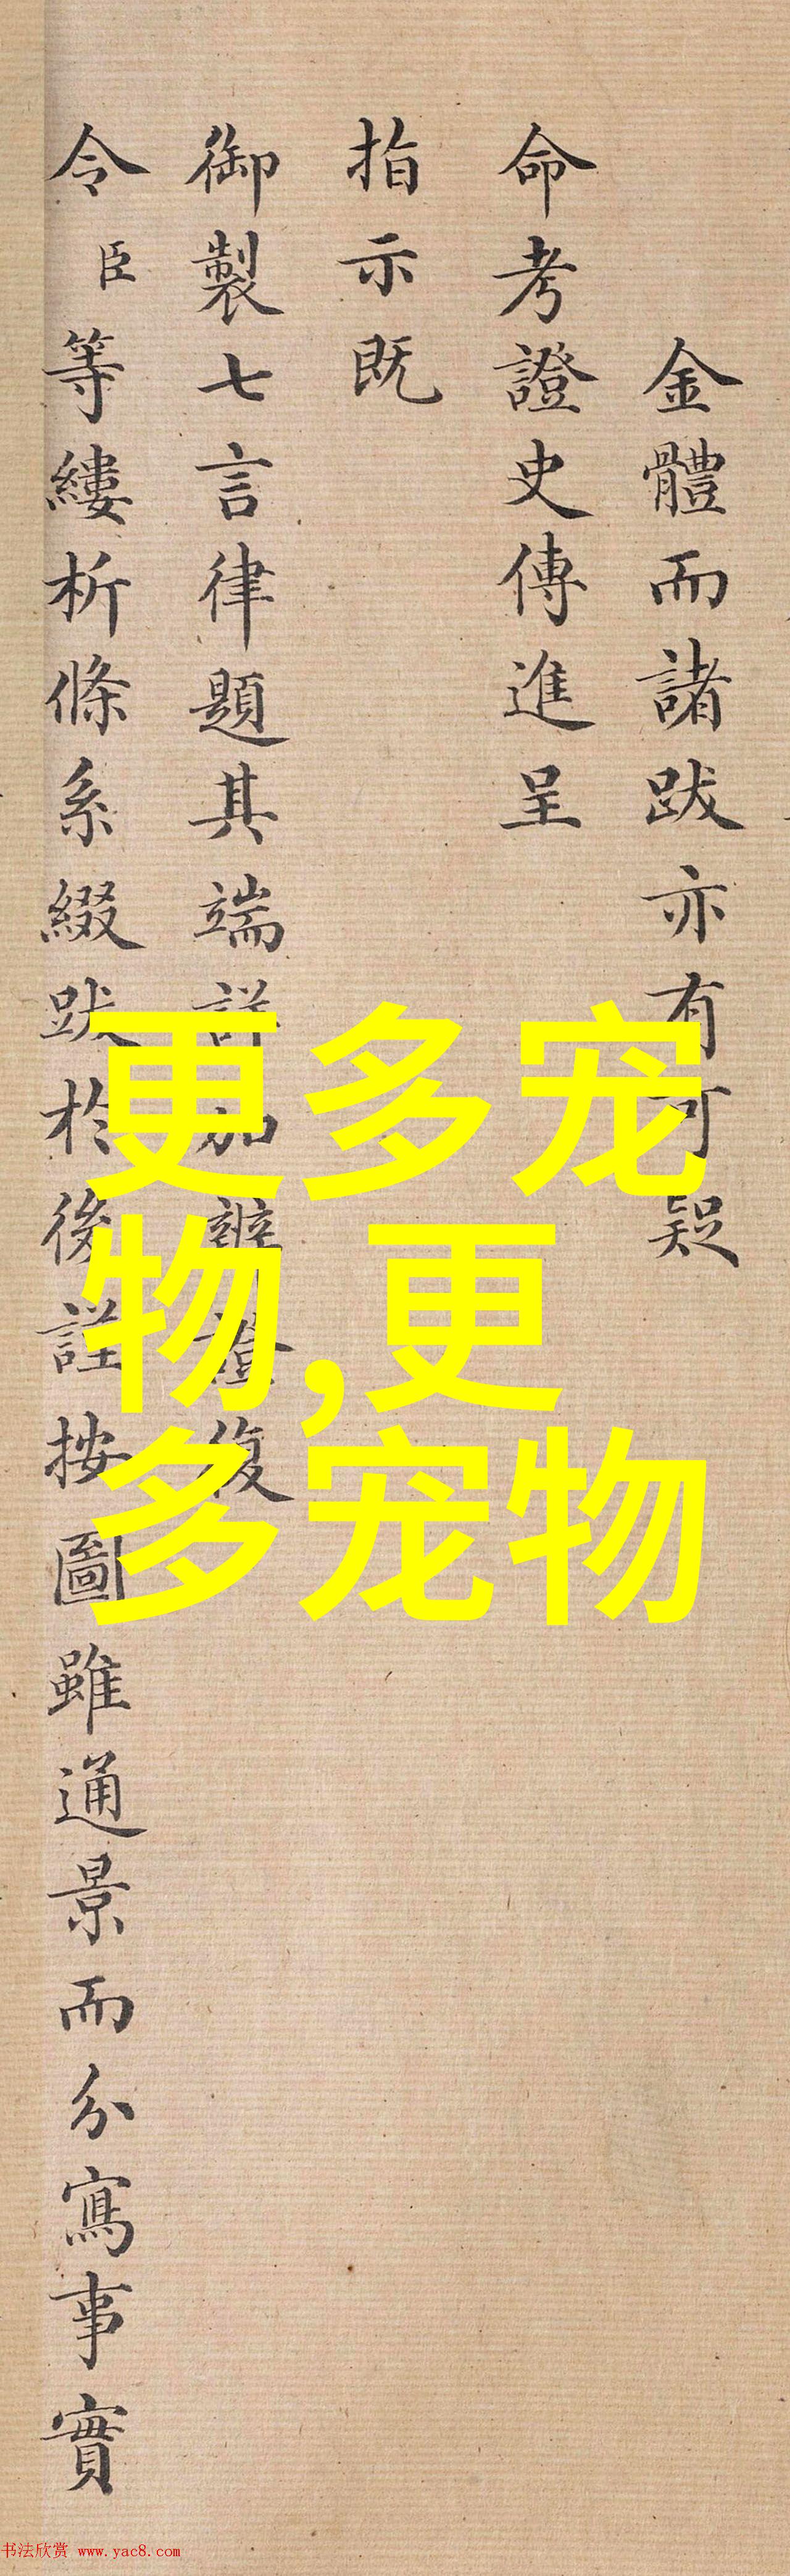 金體而諸跋亦有可疑
命考證史傳進呈
指示既
御製七言律題其端詳加辨證復
令臣等縷析條系綴跋於後謹按圖雖通景而分寫事實
更多宠
物,更
多宠物
书法欣赏 www.yac8.com